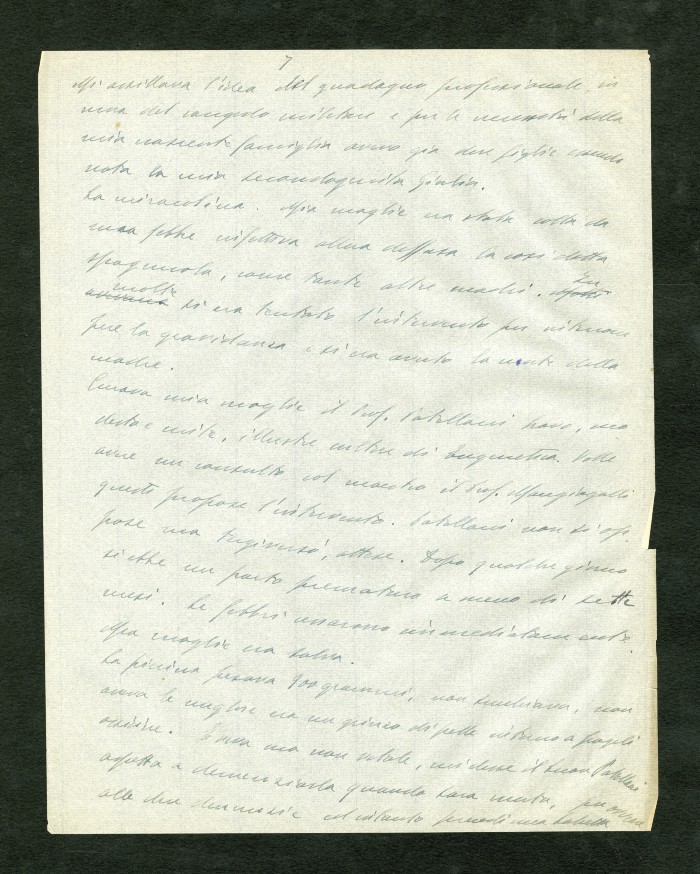 7
Mi assillava l'idea del guadagno professionale, in
vista del congedo militare e per le necessità della
mia nascente famiglia avevo già due figlie essendo
nata la mia secondogenita Giulia.
La miracolina. Mia moglie era stata colta da
una febbre infettiva allora diffusa la così detta
spagnola, come tante altre madri. In
molte si era tentato l'intervento per interrom
pere la gravidanza e si era avuto la morte della
madre.
Curava mia moglie il Prof. Patellani bravo, mo
desto e mite, illustre cultore di Eugenetica. Volle
avere un consulto col maestro il Prof. Mangiagalli
questi propose l'intervento. Patellani non si op
pose ma tergiversò, attese. Dopo qualche giorno
si ebbe un parto prematuro a meno di sette
mesi. Le febbri cessarono immediatamente.
Mia moglie era salva.
La piccina pesava 900 grammi, non succhiava, non
aveva le unghie era un pizzico di pelle intorno a fragili
ossicine. È viva ma non vitale, mi disse il buon Patellani
aspetta a denunziarla quando sarà morta, per
alle due denunzie ed intanto prendi una